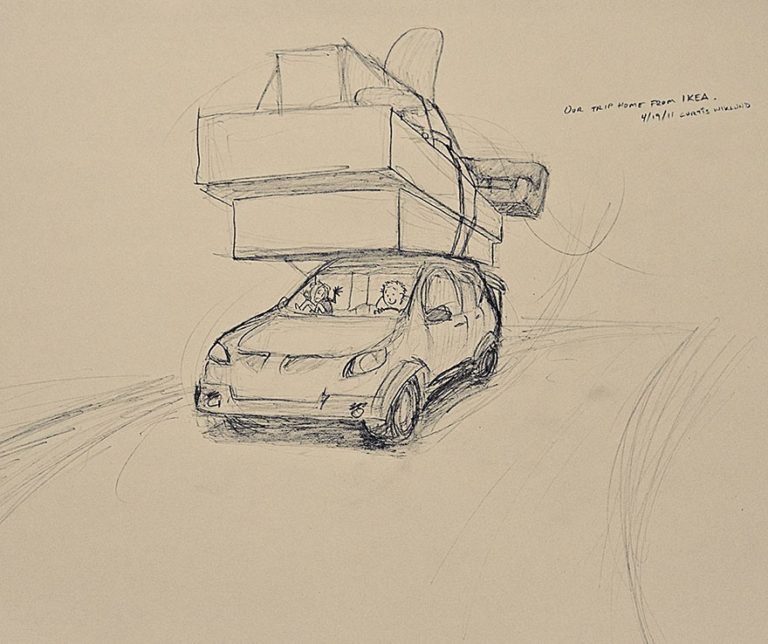 OUR TRIP HOME FROM IKEA.
4/19/11 CURTIS WIKLUND